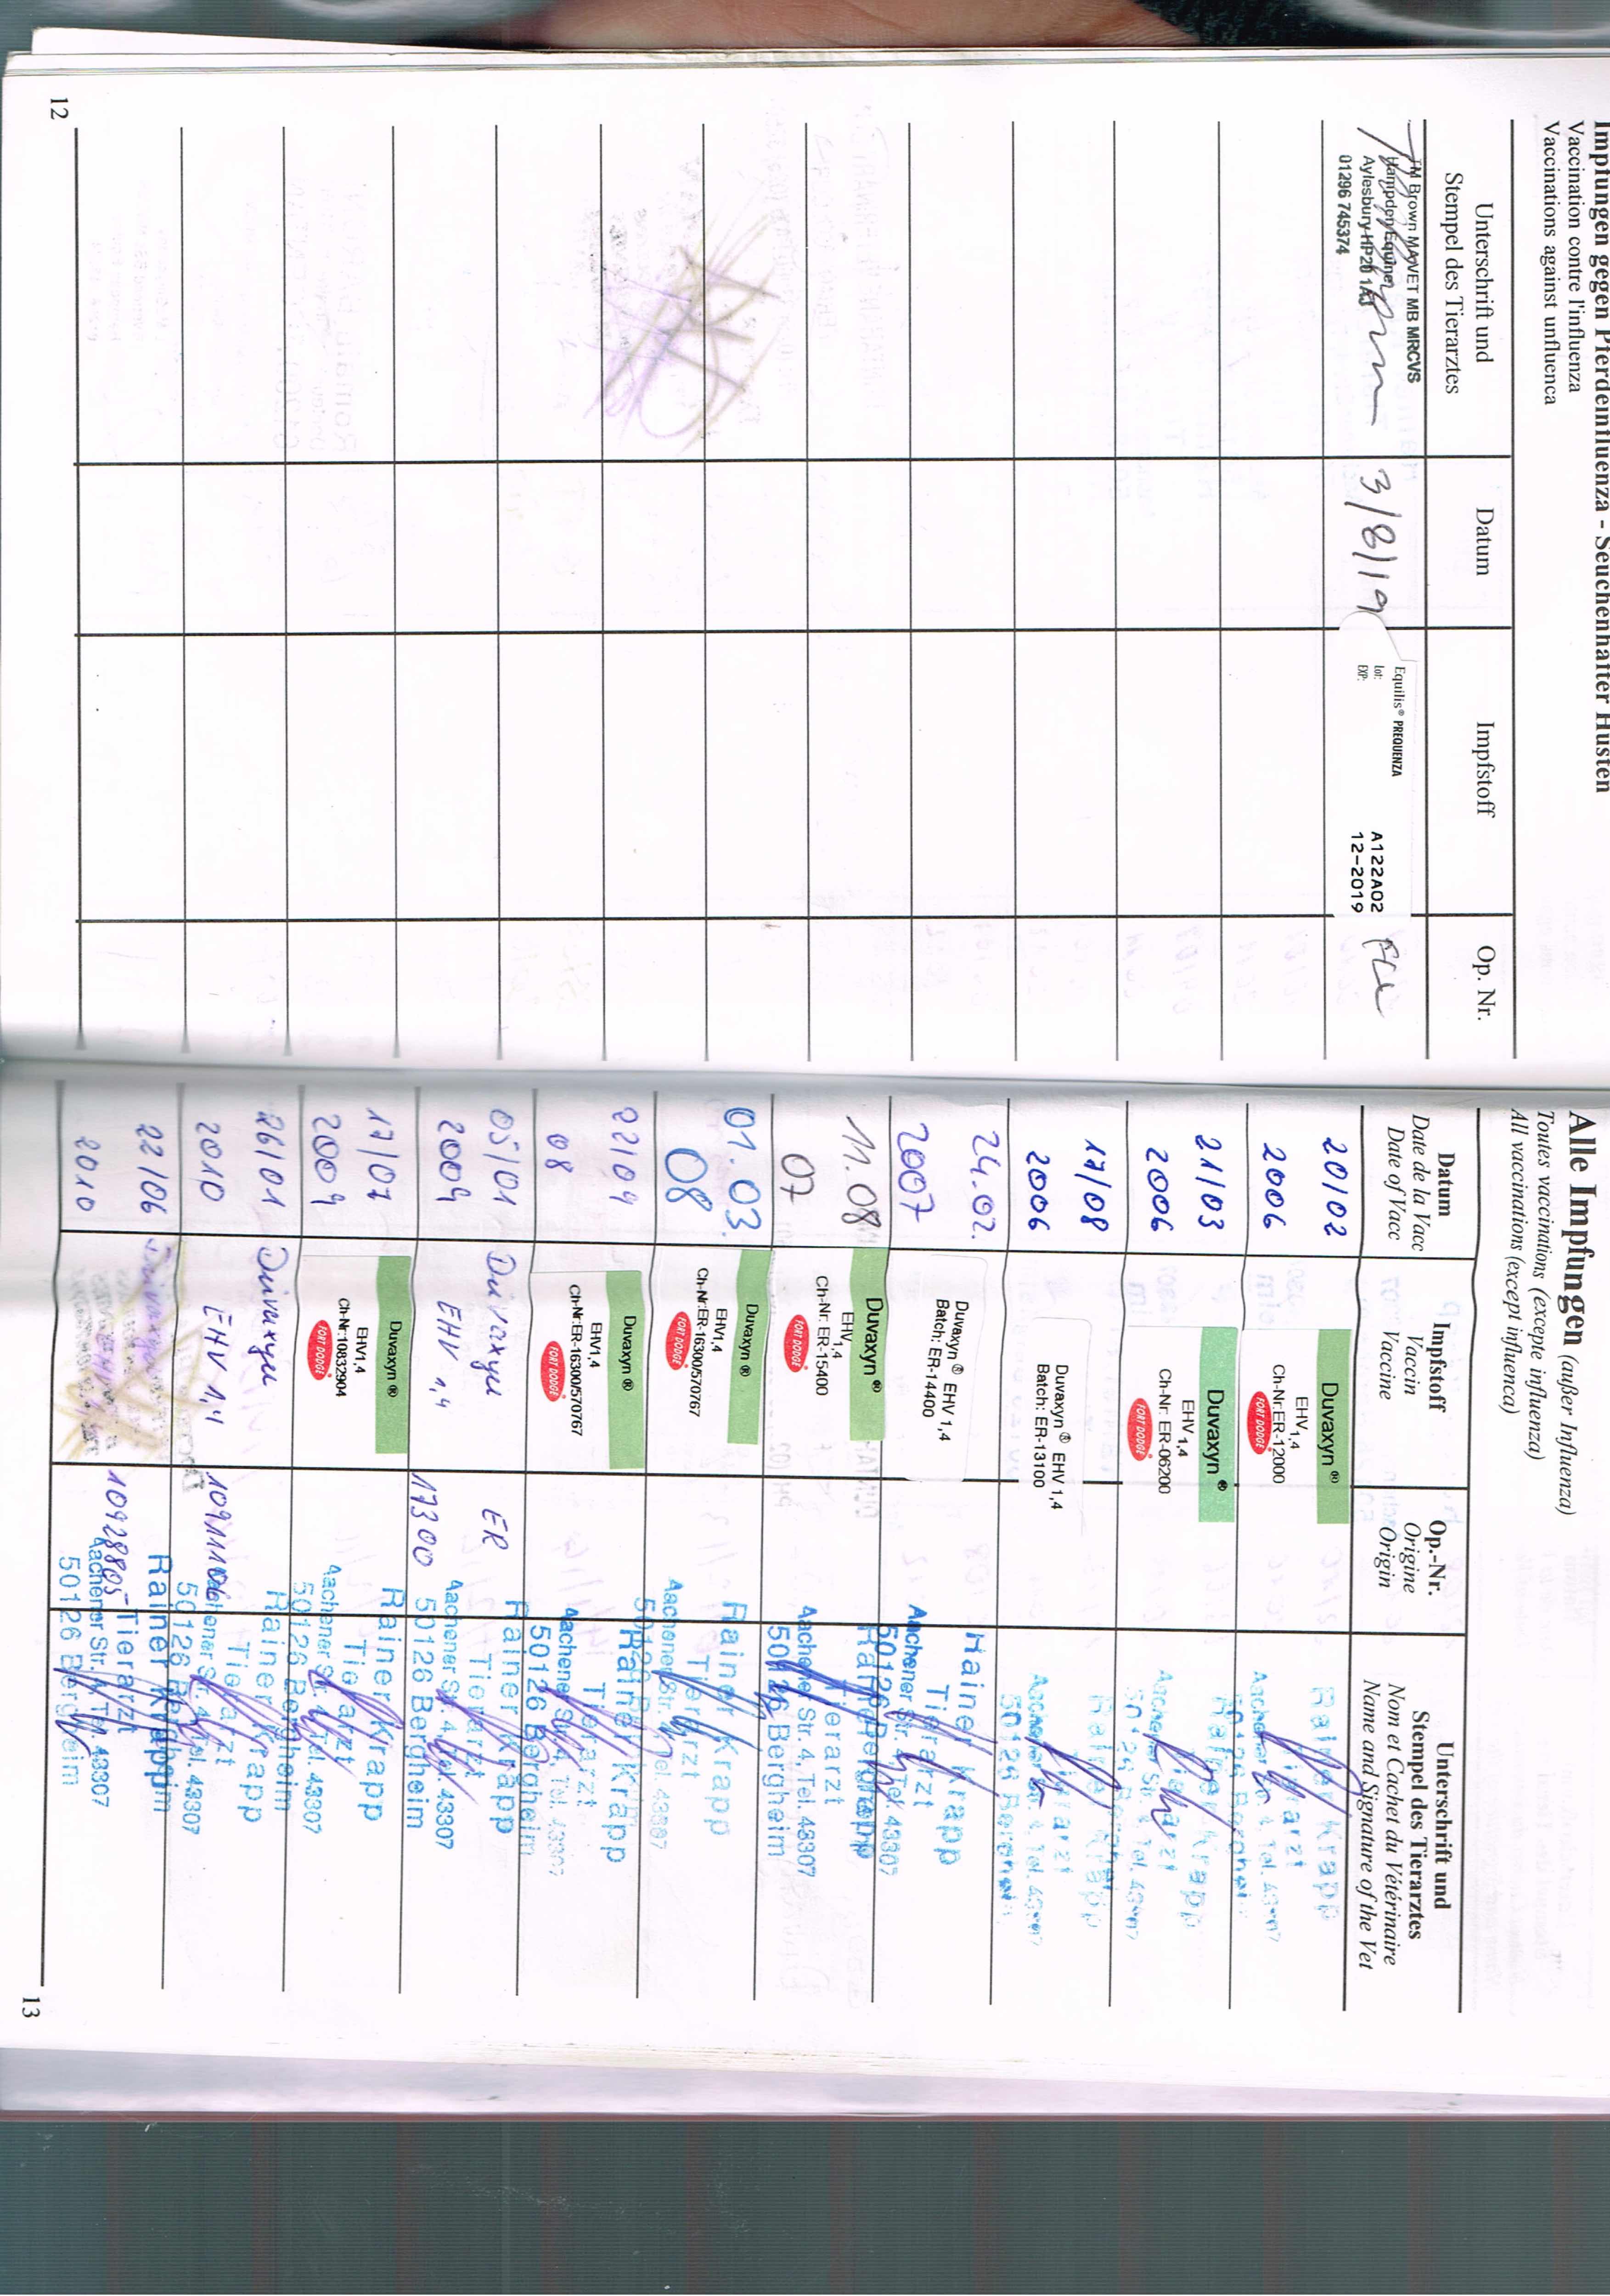 Impfungen gegen Pferdeinfluenza - Seuchenhafter Husten
Vaccination contre l'influenza
Vaccinations against unfluenca
Unterschrift und
Stempel des Tierarztes
Datum
Impfstoff
Op. Nr.
TM Brown MAVET MB MRCVS
Hampden Equine
Aylesbury HP20 1AJ
01296 745374
3/8/19
Equilis® PREQUENZA
Lot:
EXP:
A122A02
12-2019
Flu
12
Alle Impfungen (außer Influenza)
Toutes vaccinations (excepte influenza)
All vaccinations (except influenca)
Datum
Date de la Vacc
Date of Vacc
Impfstoff
Vaccin
Vaccine
Op.-Nr.
Origine
Origin
Unterschrift und
Stempel des Tierarztes
Nom et Cachet du Vétérinaire
Name and Signature of the Vet
20/02
2006
Duvaxyn®
EHV1,4
Ch-Nr:ER-12000
FORT DODGE
Rainer Krapp
Tierarzt
Aachener Str. 4 Tel. 43307
50126 Bergheim
21/03
2006
Duvaxyn®
EHV1,4
Ch-Nr: ER-06200
FORT DODGE
Rainer Krapp
Tierarzt
Aachener Str. 4 Tel. 43307
50126 Bergheim
17/08
2006
Duvaxyn® EHV 1,4
Batch: ER-13100
Rainer Krapp
Tierarzt
Aachener Str. 4 Tel. 43307
50126 Bergheim
24.02.
2007
Duvaxyn® EHV 1,4
Batch: ER-14400
Rainer Krapp
Tierarzt
Aachener Str. 4, Tel. 43307
50126 Bergheim
11.08
07
Duvaxyn®
EHV1,4
Ch-Nr: ER-15400
FORT DODGE
Rainer Krapp
Tierarzt
Aachener Str. 4, Tel. 43307
50126 Bergheim
01.03.
08
Duvaxyn®
EHV1,4
Ch-Nr:ER-16300/570767
FORT DODGE
Rainer Krapp
Tierarzt
Aachener Str. 4, Tel. 43307
50126 Bergheim
22/09
08
Duvaxyn®
EHV1,4
Ch-Nr:ER-16300/570767
FORT DODGE
Rainer Krapp
Tierarzt
Aachener Str. 4, Tel. 43307
50126 Bergheim
05/01
2009
Duvaxyn
EHV 1,4
ER
17300
Rainer Krapp
Tierarzt
Aachener Str. 4, Tel. 43307
50126 Bergheim
17/07
2009
Duvaxyn®
EHV1,4
Ch-Nr:10832904
FORT DODGE
Rainer Krapp
Tierarzt
Aachener Str. 4, Tel. 43307
50126 Bergheim
26/01
2010
Duvaxyn
EHV 1,4
Rainer Krapp
Tierarzt
Aachener Str. 4, Tel. 43307
50126 Bergheim
22/06
2010
10928805
Rainer Krapp
Tierarzt
Aachener Str. 4, Tel. 43307
50126 Bergheim
13